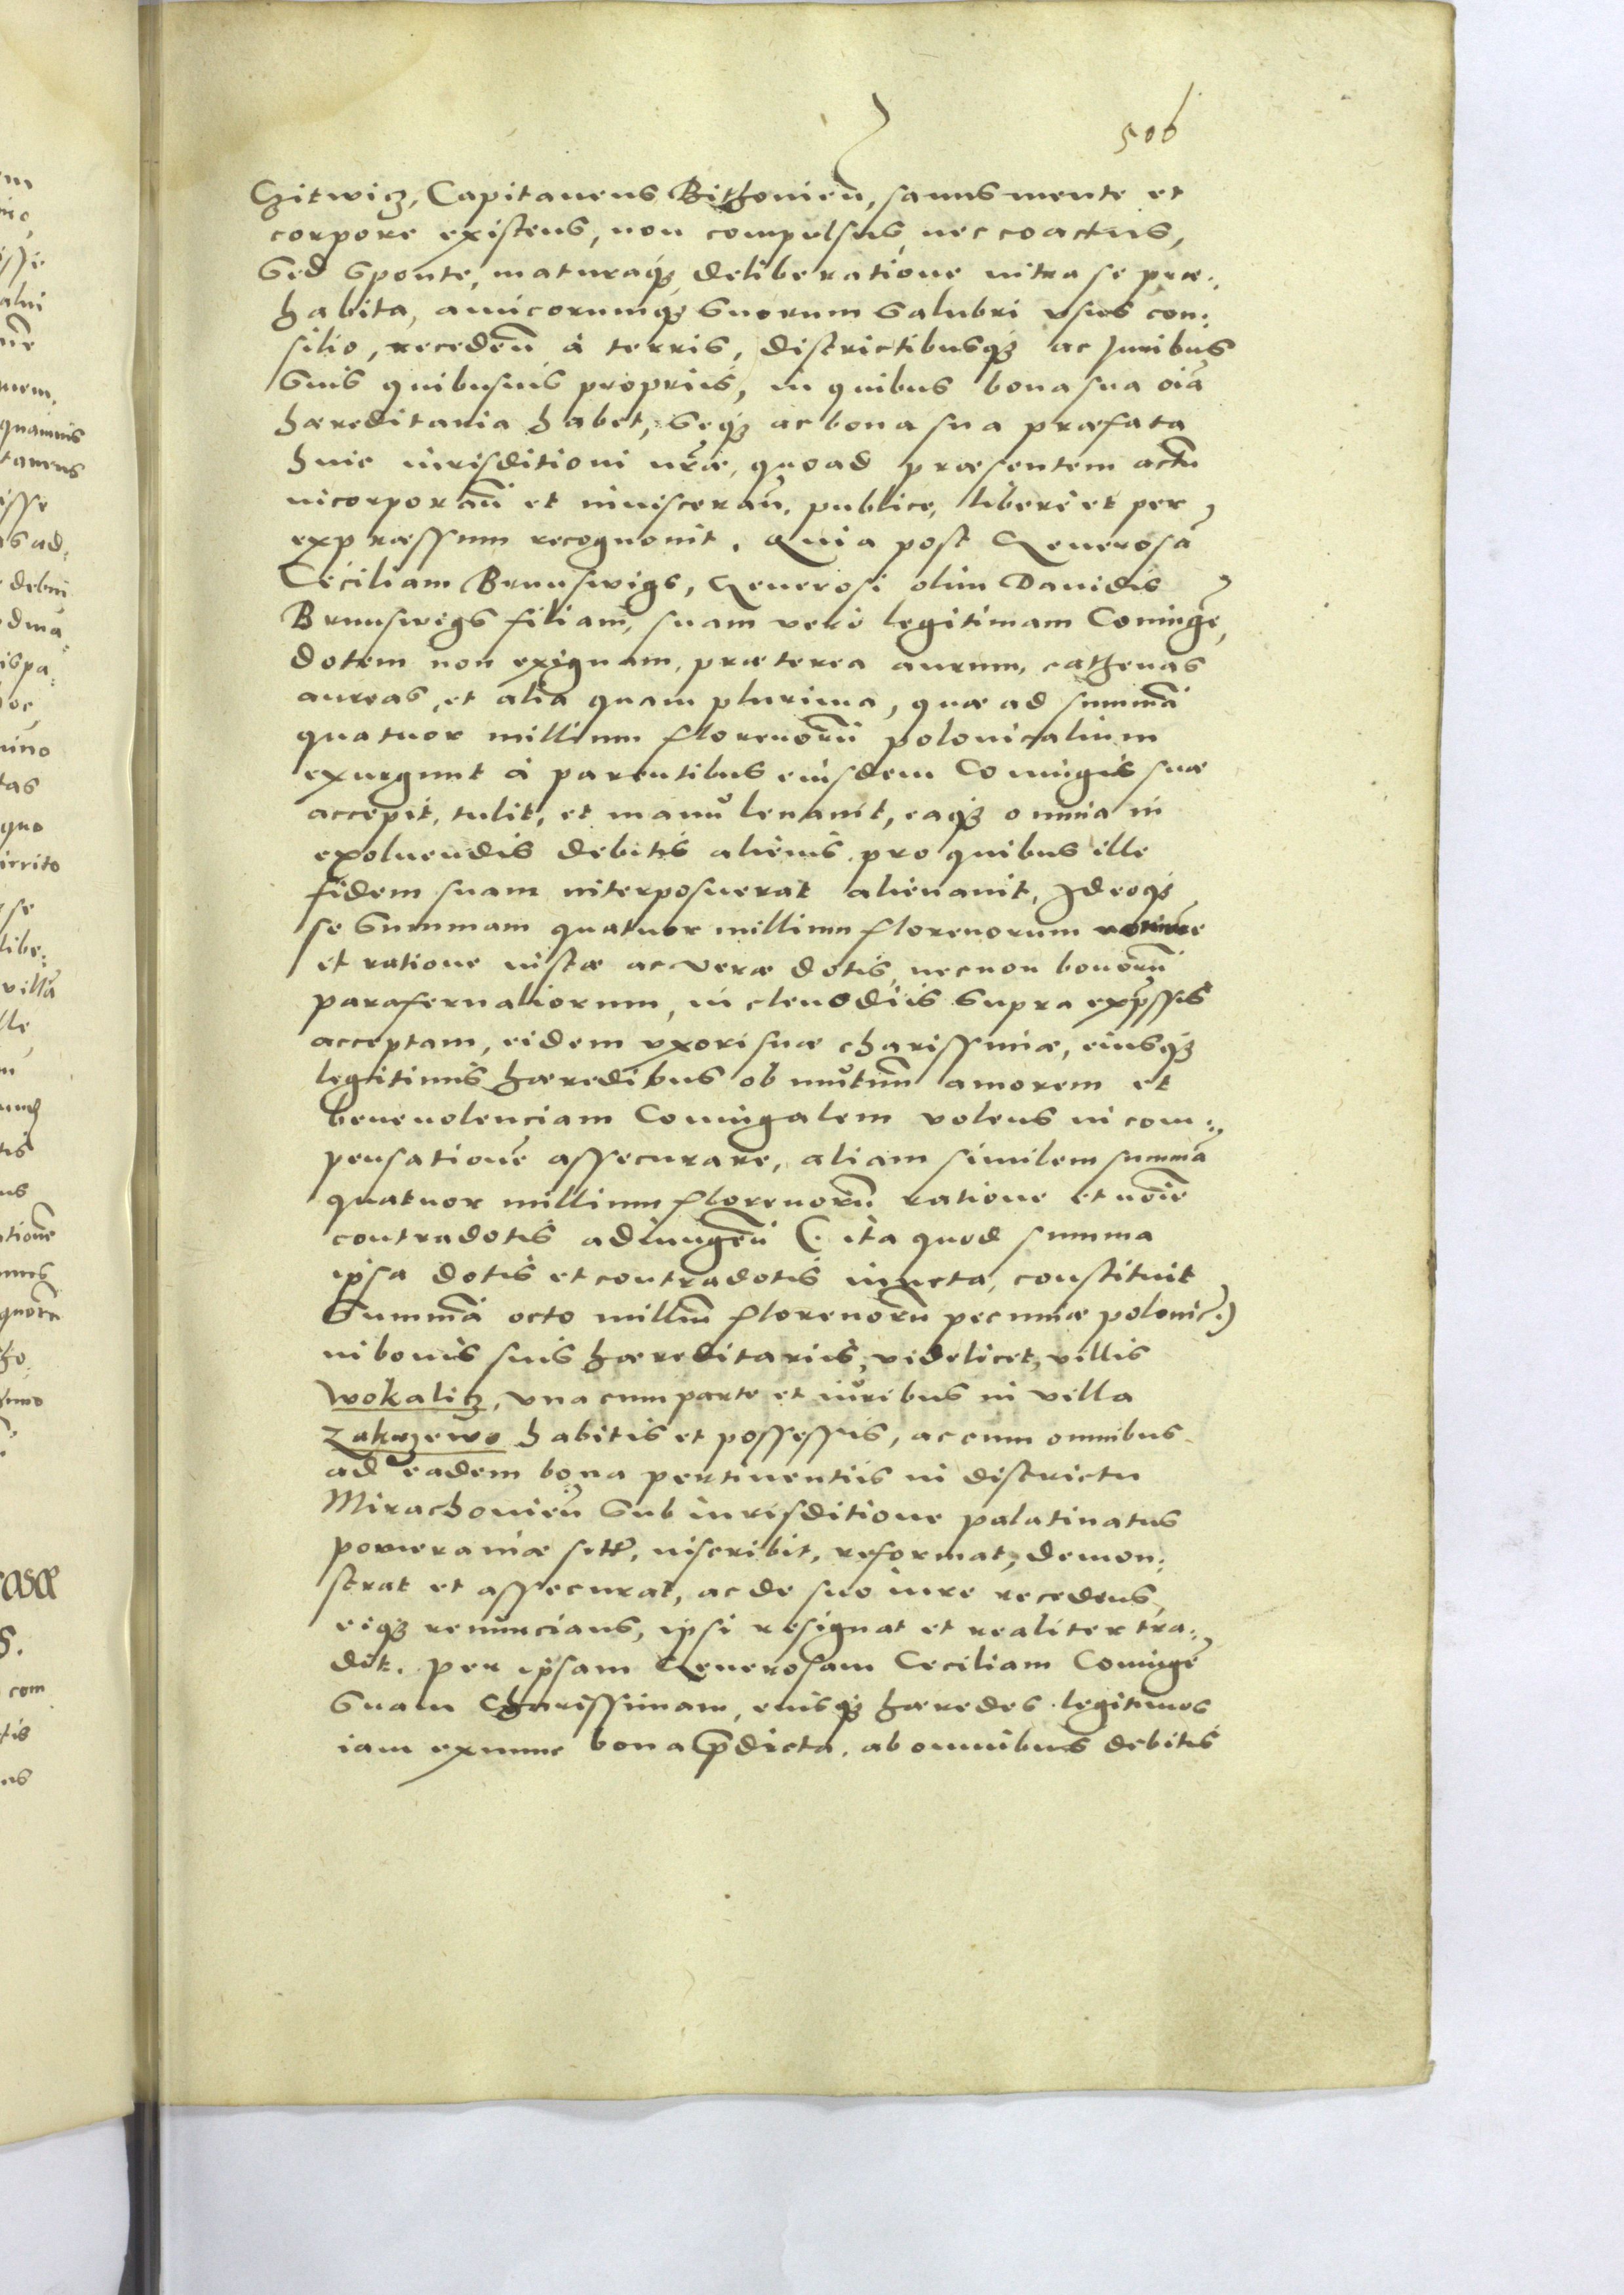 506
Czitwicz, Capitaneus Bithonien̄, sanus mente et
corpore existens, non compulsus nec coactus,
Sed Sponte, maturaq; deliberatione intra se præ:
habita, amicorumq; Suorum Salubri vsus con:
silio, recedeñ à terris, districtibusq; ac Juribus
Suis quibusuis proprijs, in quibus bona sua oīa
hæreditaria habet, Seq; ac bona sua præfata
huic iurisditioni nr̄æ, quoad præsentem actū
incorporañ et inuisceraꞥ, publice, liberè et per
expræssum recognouit. Quia post Generosā
Ceciliam Brunswigs, Generosi olim Dauidis
Brunswigs filiam, suam verè legitimam Coniugē,
dotem non exiguam, præterea aurum, cathenas
aureas, et alia quam plurima, quæ ad summā
quatuor millium florenorū polonicalium
exurgunt à parentibus eiusdem Coniugis suæ
accepit, tulit, et manu leuauit, eaq; omnia in
exoluendis debitis alienis, pro quibus ille
fidem suam interposuerat alienauit, Ideoq;
se Summam quatuor millium florenorum nomine
et ratione iustæ ac veræ dotis, necnon bonorū
parafernaliorum, in clenodijs Supra exp̄ssis
acceptam, eidem vxori suæ charissimæ, eiusq;
legitimis hæredibus ob mutuū amorem et
beneuolenciam Coniugalem volens in com:
pensationē assecurare, aliam similem summā
quatuor millium florenorū ratione et noīe
contradotis adiungeñ (: ita quod summa
ipsa dotis et contradotis iuncta, constituit
Summā octo milliū florenorū pecuniæ polonic̄:)
in bonis suis hæreditarijs, videlicet, villis
Wokalicz, vna cum parte et iuribus in villa
Zakrzewo habitis et possessis, ac cum omnibus
ad eadem bona pertinentijs in districtu
Mirachouieñ Sub iurisditione palatinatus
pomeraniæ sitꝭ, inscribit, reformat, demon:
strat et assecurat, ac de suo iure recedens,
eiq; renuncians, ipsi resignat et realiter tra:
dit. per ipsam Generosam Ceciliam Coniugē
Suam Charissimam, eiusq; hæredes legitimos
iam exnunc bona p̄dicta, ab omnibus debitis